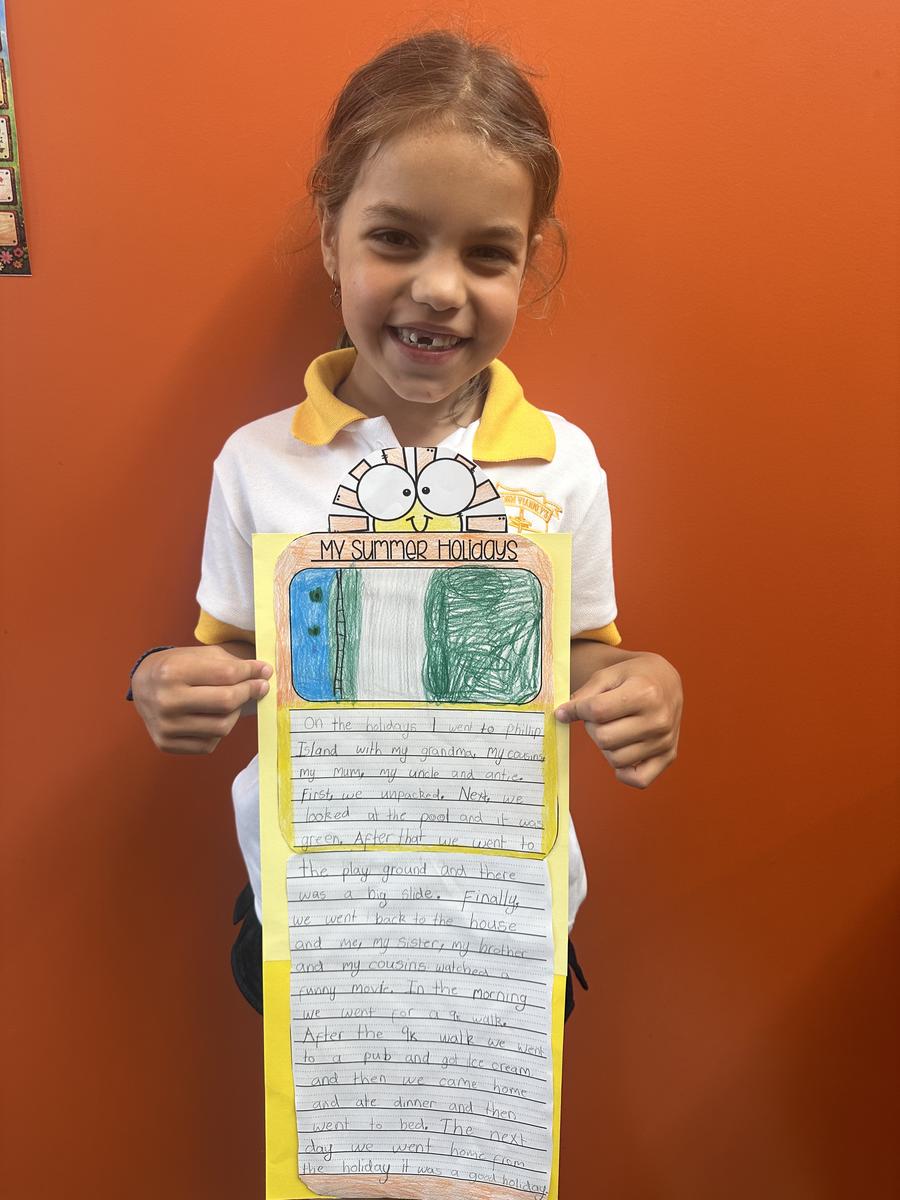 MY SUMMER HOLIDAYS
On the holidays I went to phillip
Island with my grandma, my cousins,
my mum, my uncle and antie.
First, we unpacked. Next, we
looked at the pool and it was
green. After that we went to
the play ground and there
was a big slide. Finally,
we went back to the house
and me, my sister, my brother
and my cousins watched a
funny movie. In the morning
we went for a 9k walk.
After the 9k walk we went
to a pub and got ice cream
and then we came home
and ate dinner and then
went to bed. The next
day we went home from
the holiday it was a good holiday.